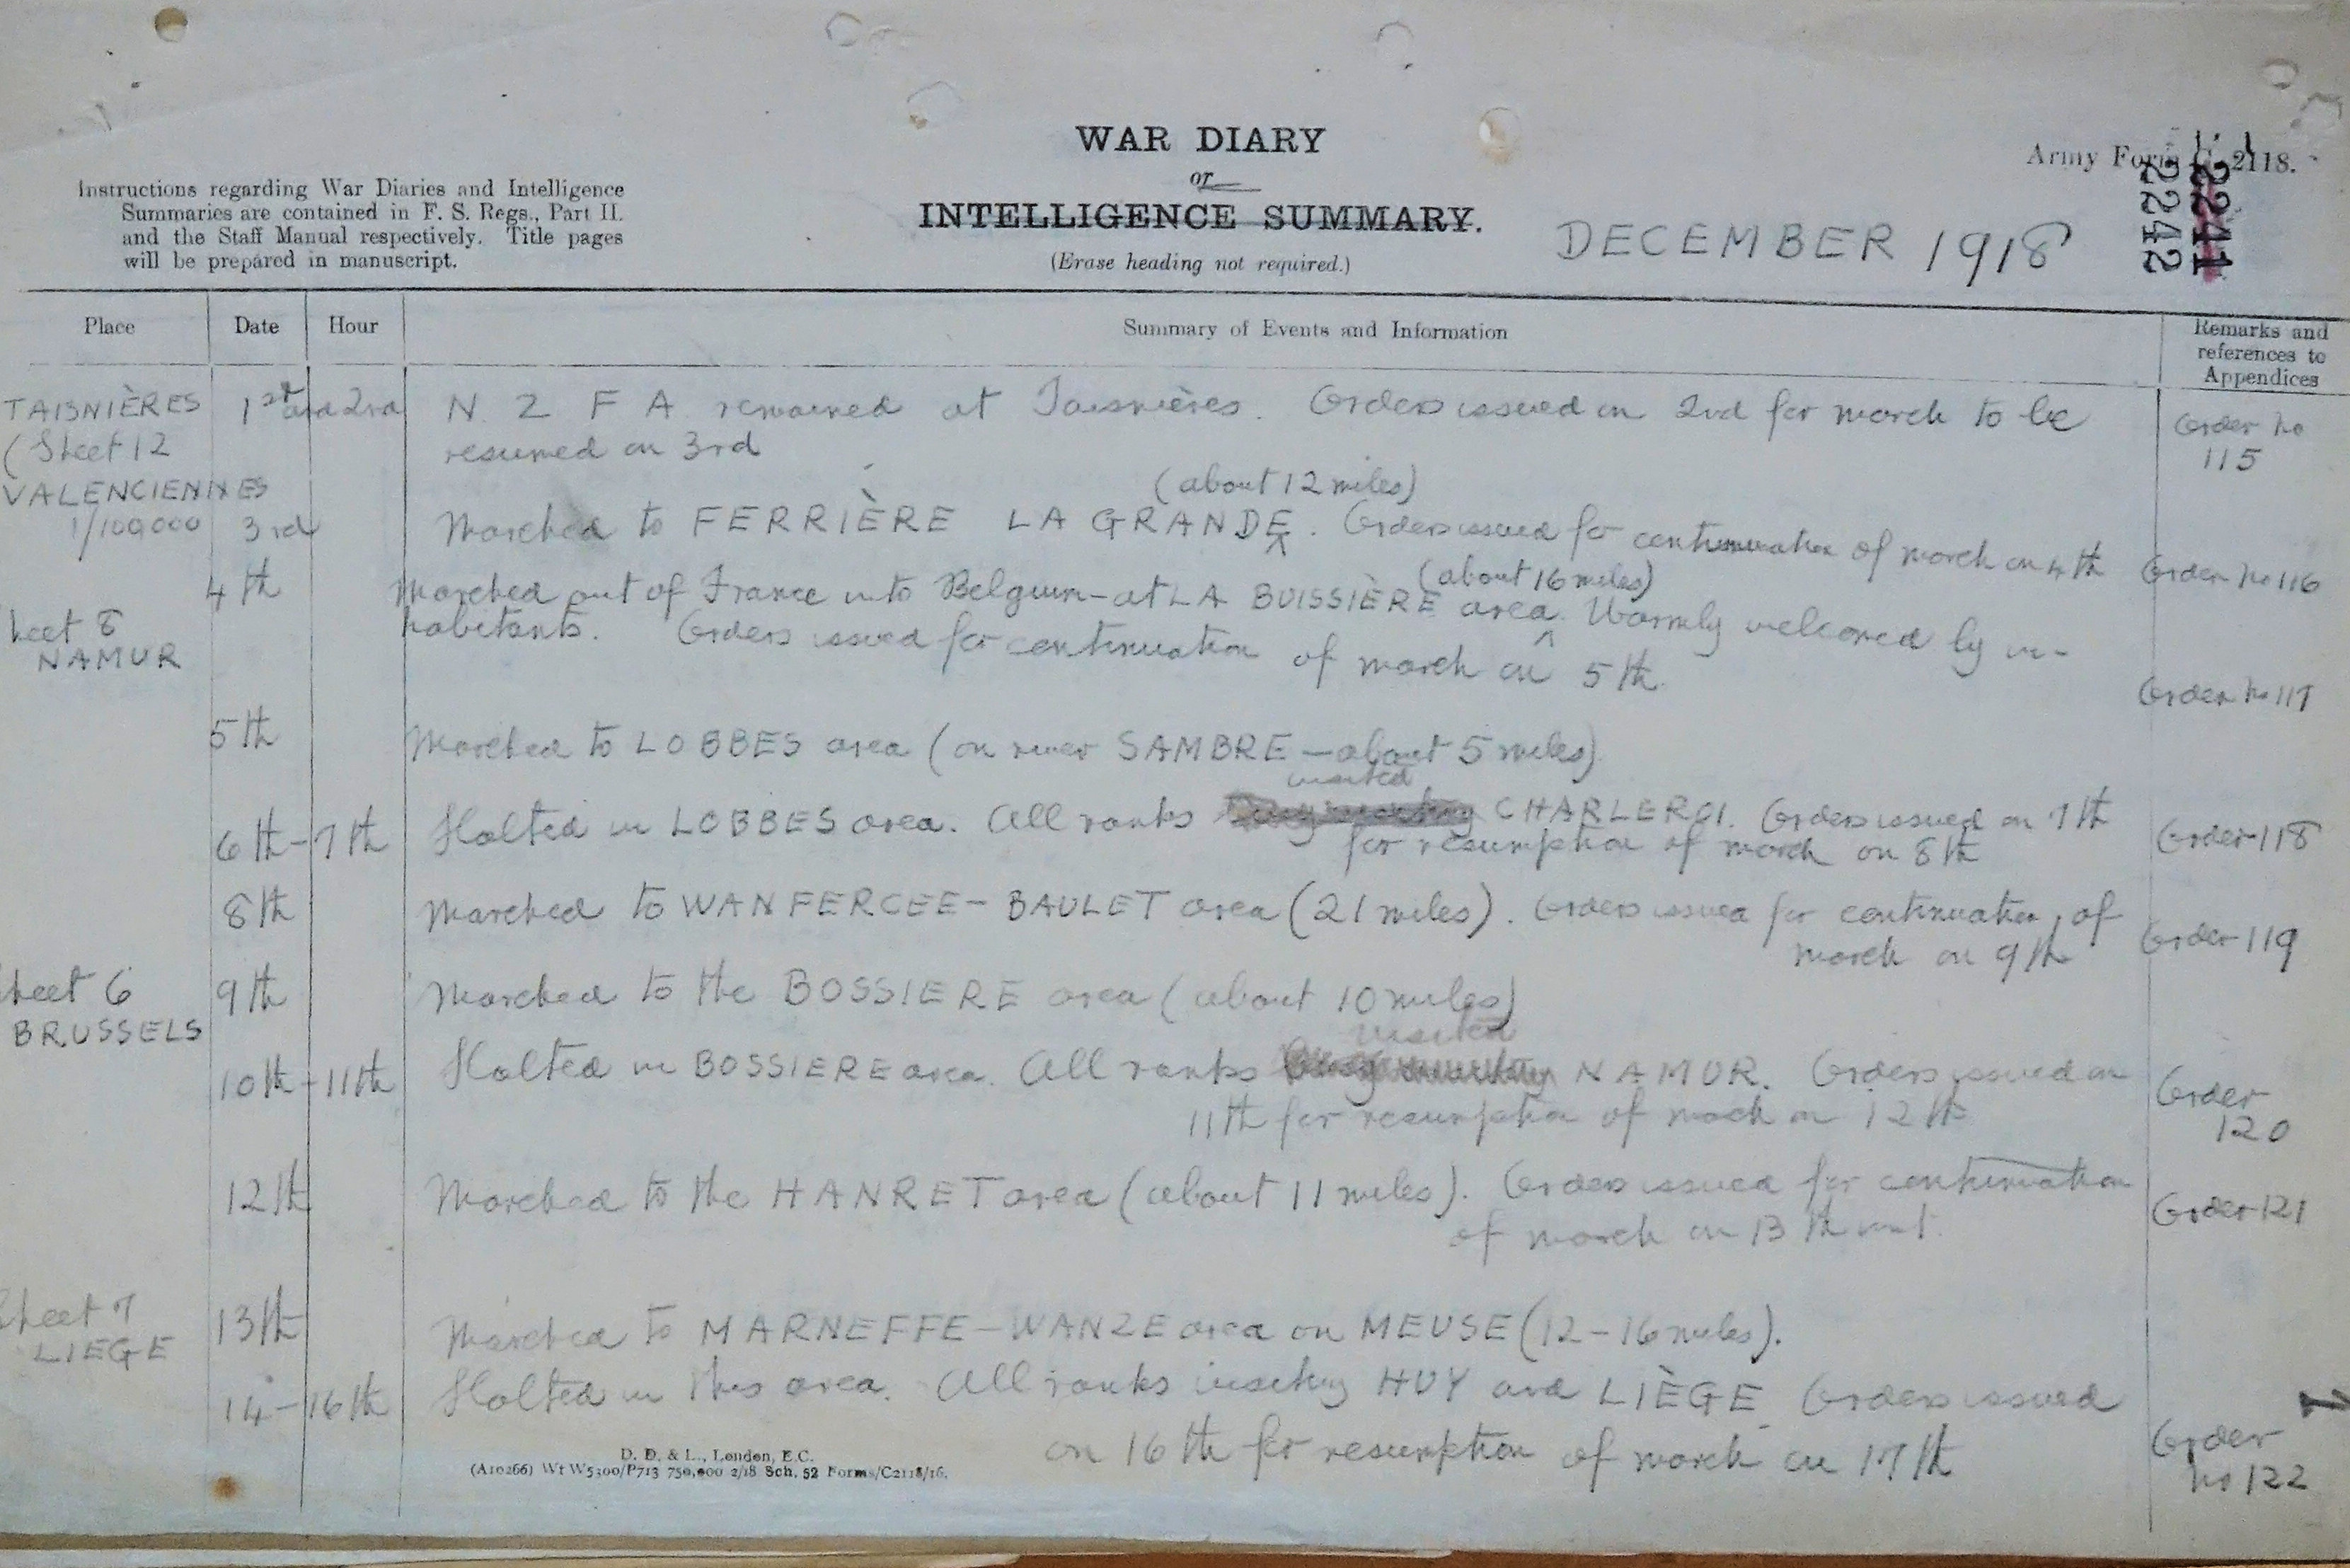 WAR DIARY
or
INTELLIGENCE SUMMARY.
(Erase heading not required.)
Instructions regarding War Diaries and Intelligence
Summaries are contained in F. S. Regs., Part II.
and the Staff Manual respectively. Title pages
will be prepared in manuscript.
Army Form C. 2118.
2241
2242
DECEMBER 1918
Place Date Hour Summary of Events and Information Remarks and
references to
Appendices
TAISNIÈRES 1st and 2nd N Z F A remained at Taisnières. Orders issued on 2nd for march to be Order No
(Sheet 12 resumed on 3rd 115
VALENCIENNES (about 12 miles)
1/100,000 3rd Marched to FERRIÈRE LA GRANDE. Orders issued for continuation of march on 4th Order No 116
4th Marched out of France into Belgium - at LA BUISSIÈRE area. (about 16 miles) Warmly welcomed by in-
heet 8 habitants. Orders issued for continuation of march on 5th.
NAMUR Order No 117
5th Marched to LOBBES area (on river SAMBRE - about 5 miles)
visited
6th-7th Halted in LOBBES area. All ranks CHARLEROI. Orders issued on 7th Order 118
for resumption of march on 8th
8th Marched to WANFERCEE-BAULET area (21 miles). Orders issued for continuation of
march on 9th Order 119
heet 6 9th Marched to the BOSSIERE area (about 10 miles)
BRUSSELS visited
10th-11th Halted in BOSSIERE area. All ranks NAMUR. Orders issued on Order
11th for resumption of march on 12th 120
12th Marched to the HANRET area (about 11 miles). Orders issued for continuation Order 121
of march on 13th inst.
heet 7 13th Marched to MARNEFFE-WANZE area on MEUSE (12-16 miles).
LIEGE
14-16th Halted in this area. All ranks visiting HUY and LIÈGE. Orders issued Order
on 16th for resumption of march on 17th No 122
D. D. & L., London, E.C.
(A10266) Wt W5300/P713 750,000 2/18 Sch. 52 Forms/C2118/16.
1